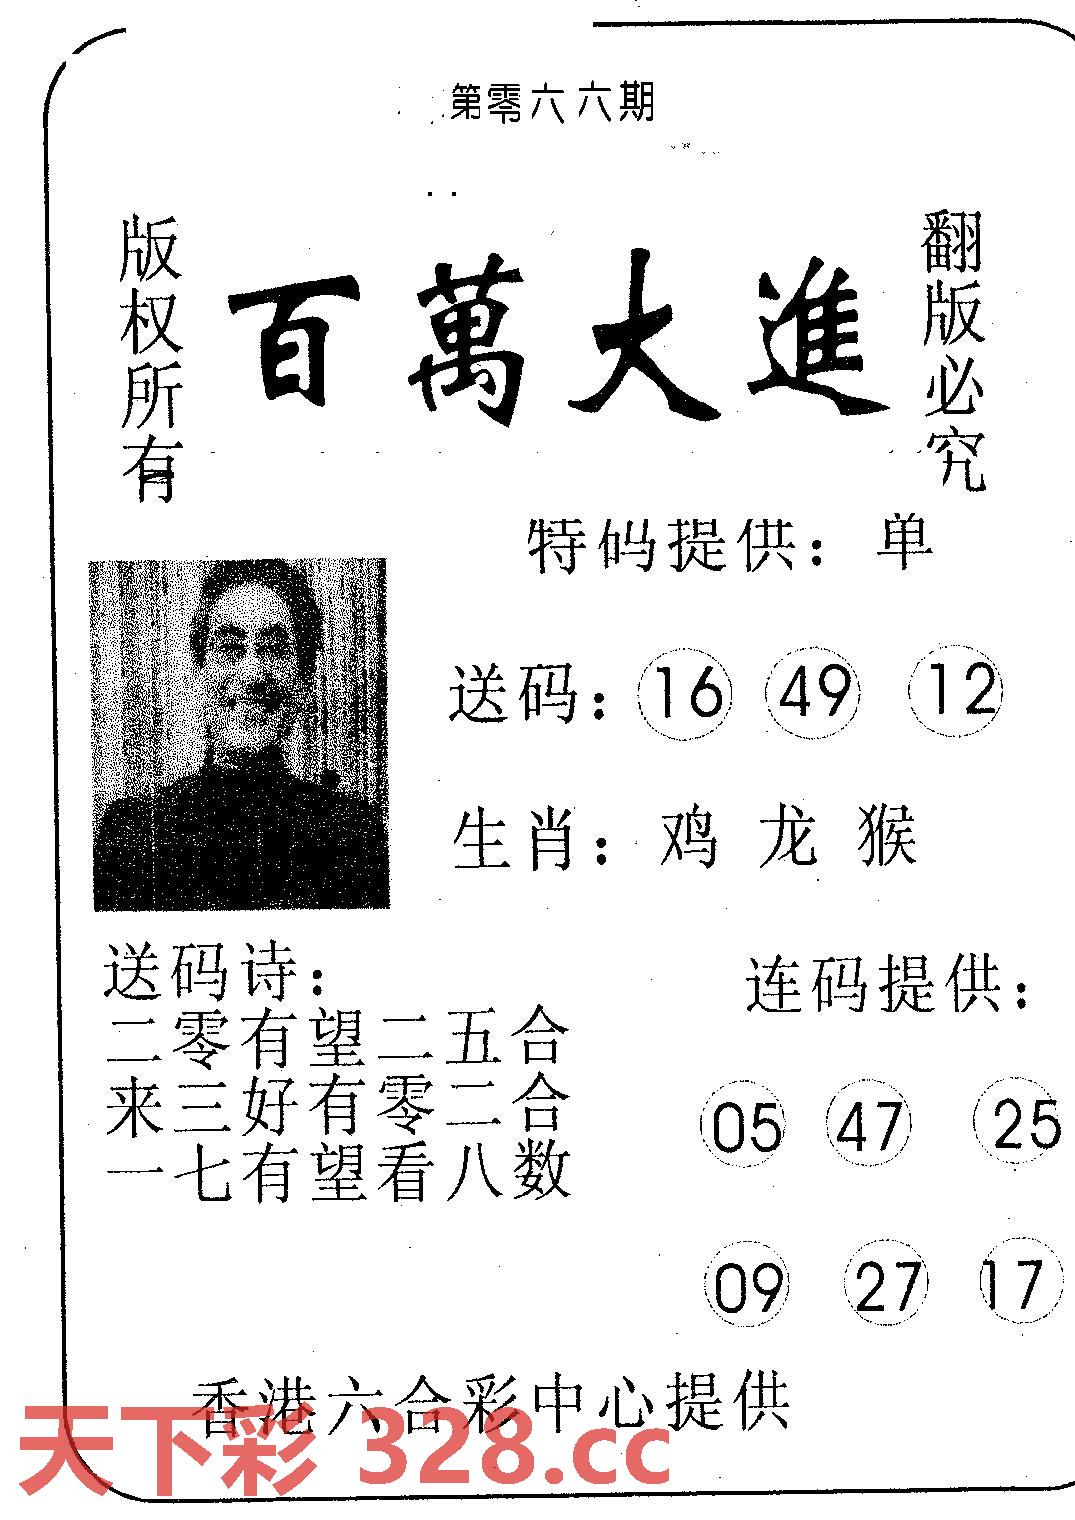 第零六六期
版权所有
百萬大進
翻版必究
特码提供：单
送码：16 49 12
生肖：鸡 龙 猴
送码诗：
二零有望二五合
来三好有零二合
一七有望看八数
连码提供：
05 47 25
09 27 17
香港六合彩中心提供
天下彩 328.cc